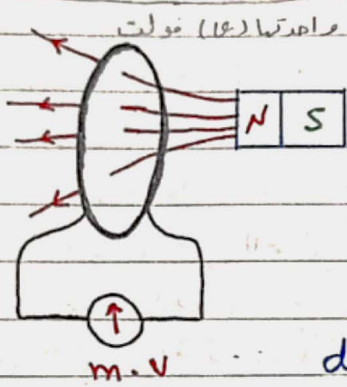 واحدتها (e) فولت
N S
m.v
d